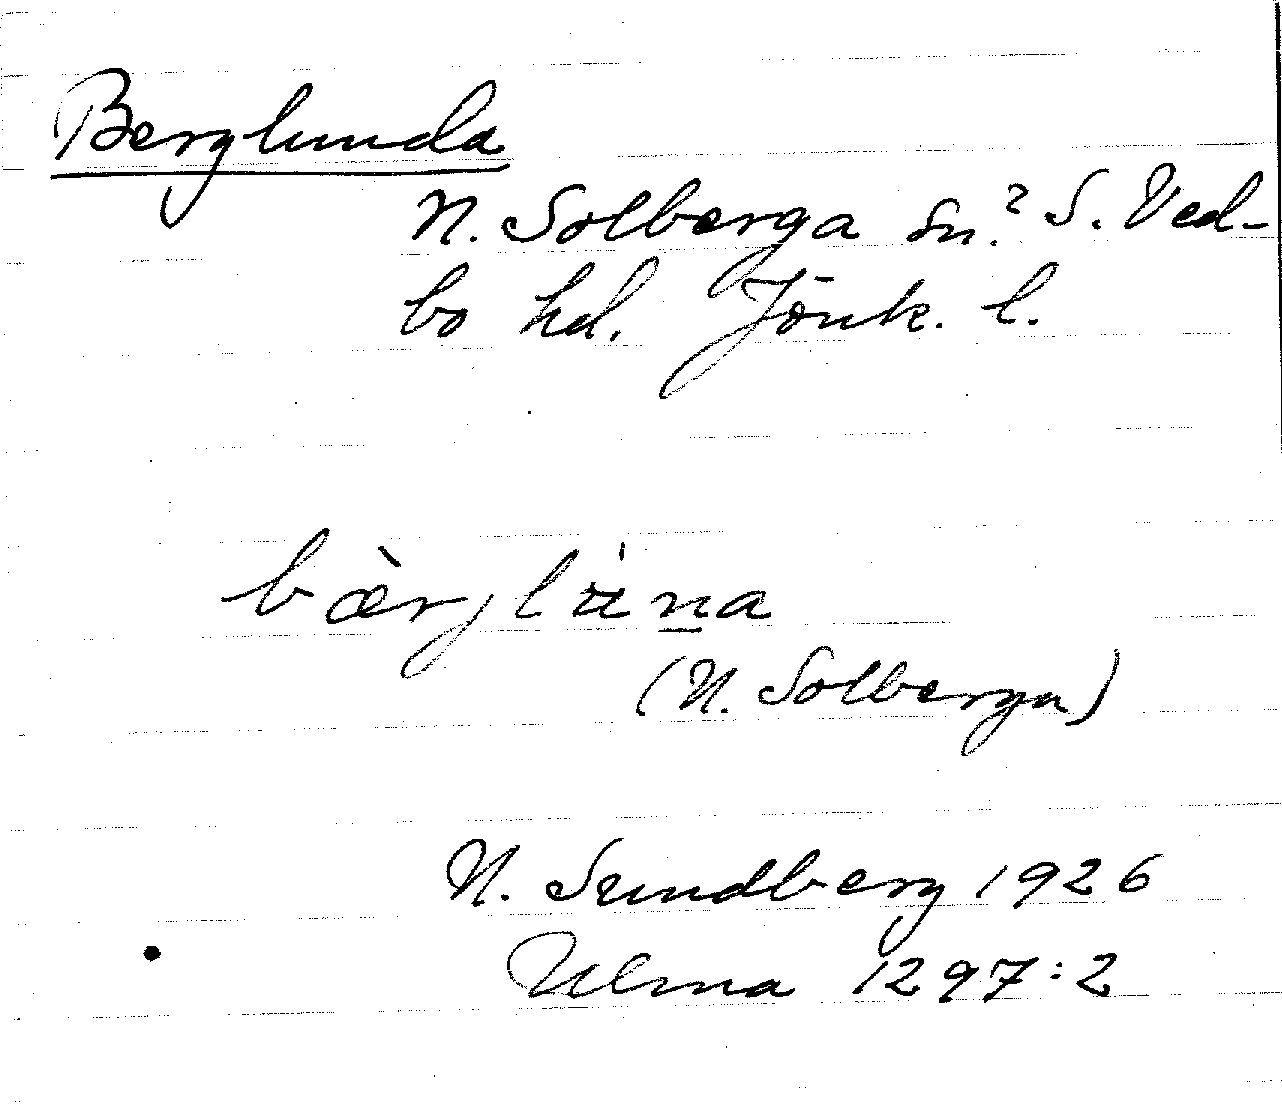 Berglunda
N. Solberga sn.? S. Ved-
bo hd. Jönk. l.
bæ̀rjlu̇na
(N. Solberga)
N. Sundberg 1926
Ulma 1297:2